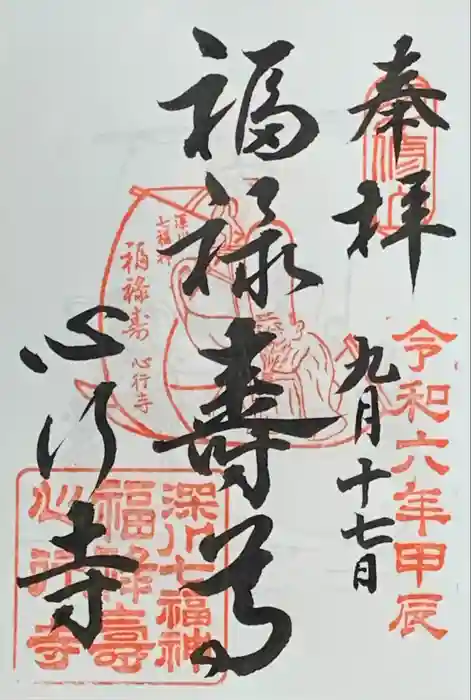 奉拝
令和六年甲辰
九月十七日
福禄寿尊
心行寺
深川
七福神
福禄寿
心行寺
深川七福神
福禄壽
心行寺